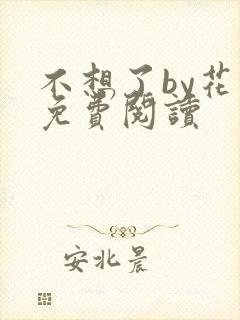 不想了by花
免費閱讀
安北晨